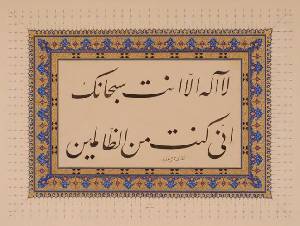 لا اله الا انت سبحانک
انی کنت من الظالمین